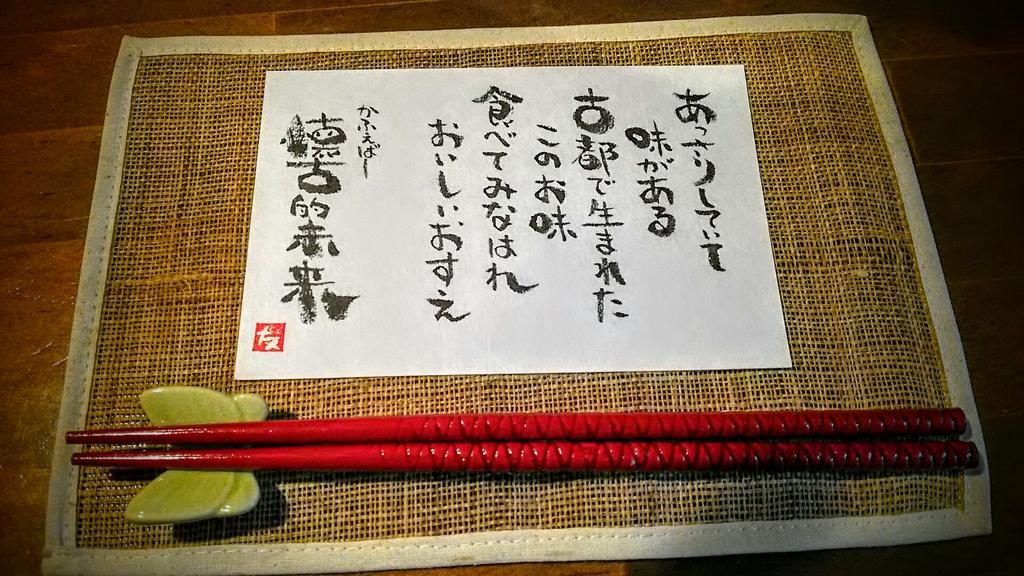 あっさりしていて
味がある
古都で生まれた
このお味
食べてみなはれ
おいしいおすえ
かふぇばー
懐古的未来